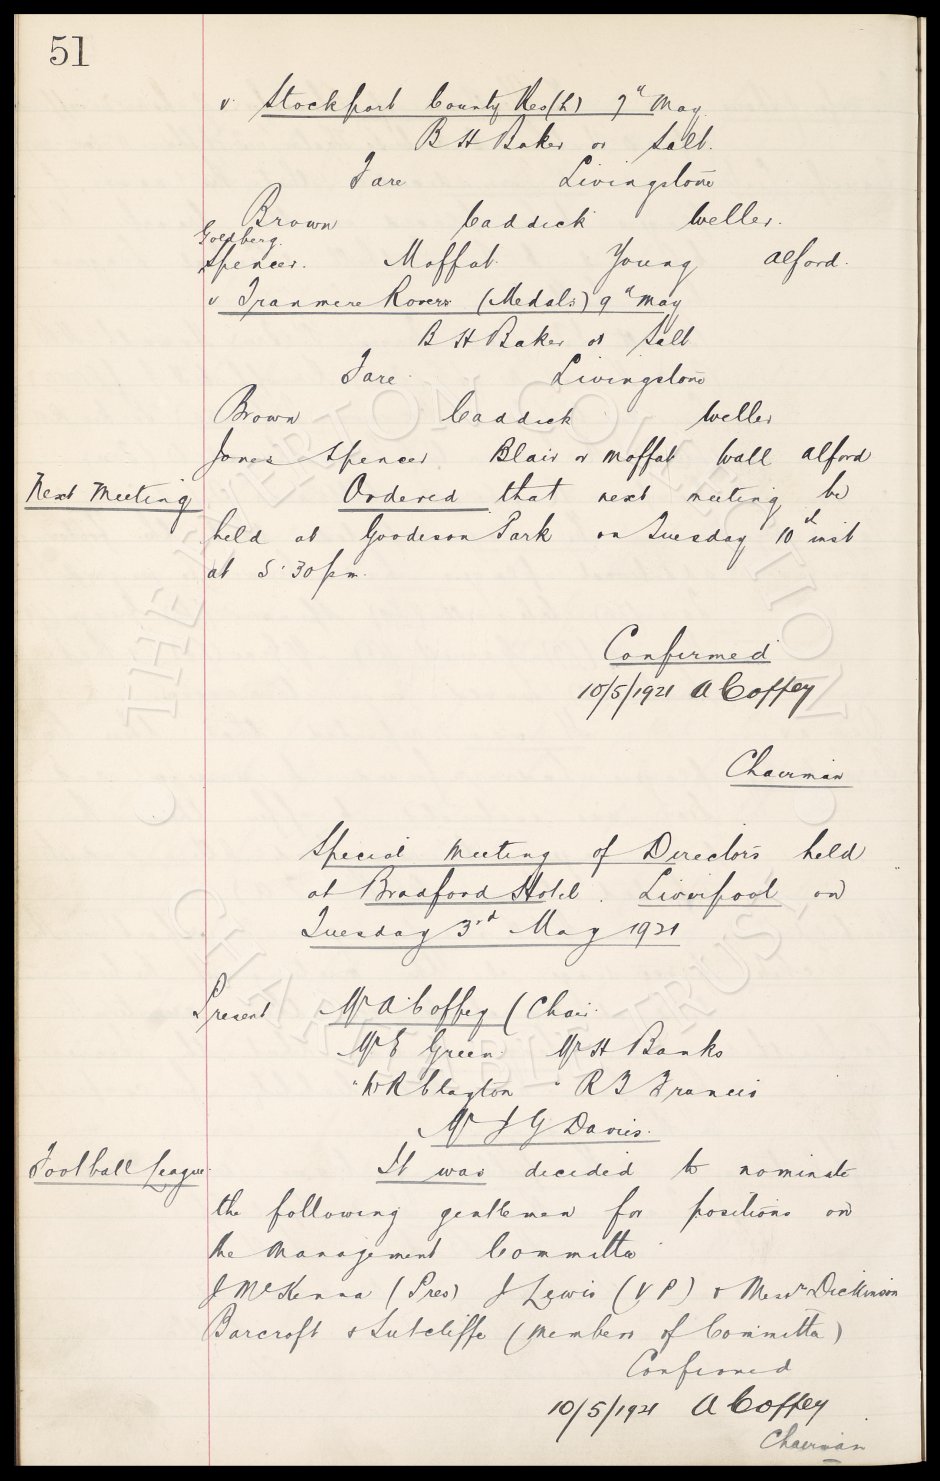 51
v. Stockport County Res (h) 7th May
B H Baker or Salt.
Fare Livingstone
Brown Caddick Weller.
Goldberg.
Spencer. Moffat. Young Alford.
v Tranmere Rovers (Medals) 9th May
B H Baker or Salt
Fare Livingstone
Brown Caddick Weller
Jones Spencer Blair or Moffat Wall Alford
Next Meeting Ordered that next meeting be
held at Goodison Park on Tuesday 10th inst
at 5.30 pm.
Confirmed
10/5/1921 A Coffey
Chairman
Special Meeting of Directors held
at Bradford Hotel. Liverpool on
Tuesday 3rd May 1921
Present Mr A Coffey (Chair
Mr E Green Mr H Banks
" W R Clayton " R T Francis
Mr J G Davies.
Football League. It was decided to nominate
the following gentlemen for positions on
the Management Committee
J McKenna (Pres) J Lewis (V P) & Messrs Dickinson
Barcroft & Sutcliffe (Members of Committee)
Confirmed
10/5/1921 A Coffey
Chairman
THE EVERTON COLLECTION
CHARITABLE TRUST